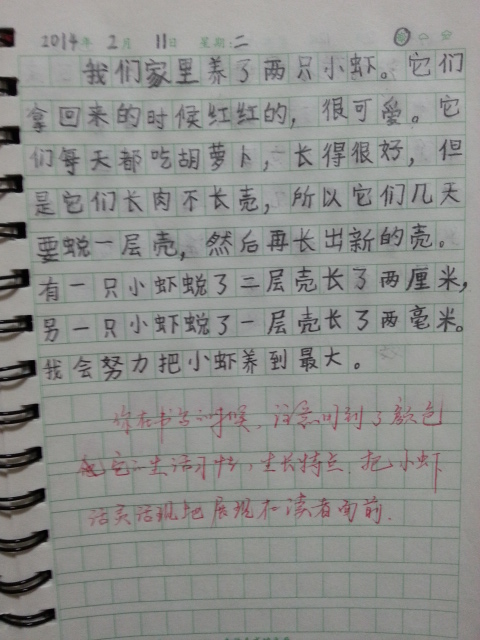 2014年 2月 11日 星期:二
我们家里养了两只小虾。它们
拿回来的时候红红的，很可爱。它
们每天都吃胡萝卜，长得很好，但
是它们长肉不长壳，所以它们几天
要蜕一层壳，然后再长出新的壳。
有一只小虾蜕了二层壳长了两厘米，
另一只小虾蜕了一层壳长了两毫米。
我会努力把小虾养到最大。
你在书写的时候，注意到了颜色
它的生活习性，生长特点，把小虾
活灵活现地展现在读者面前.